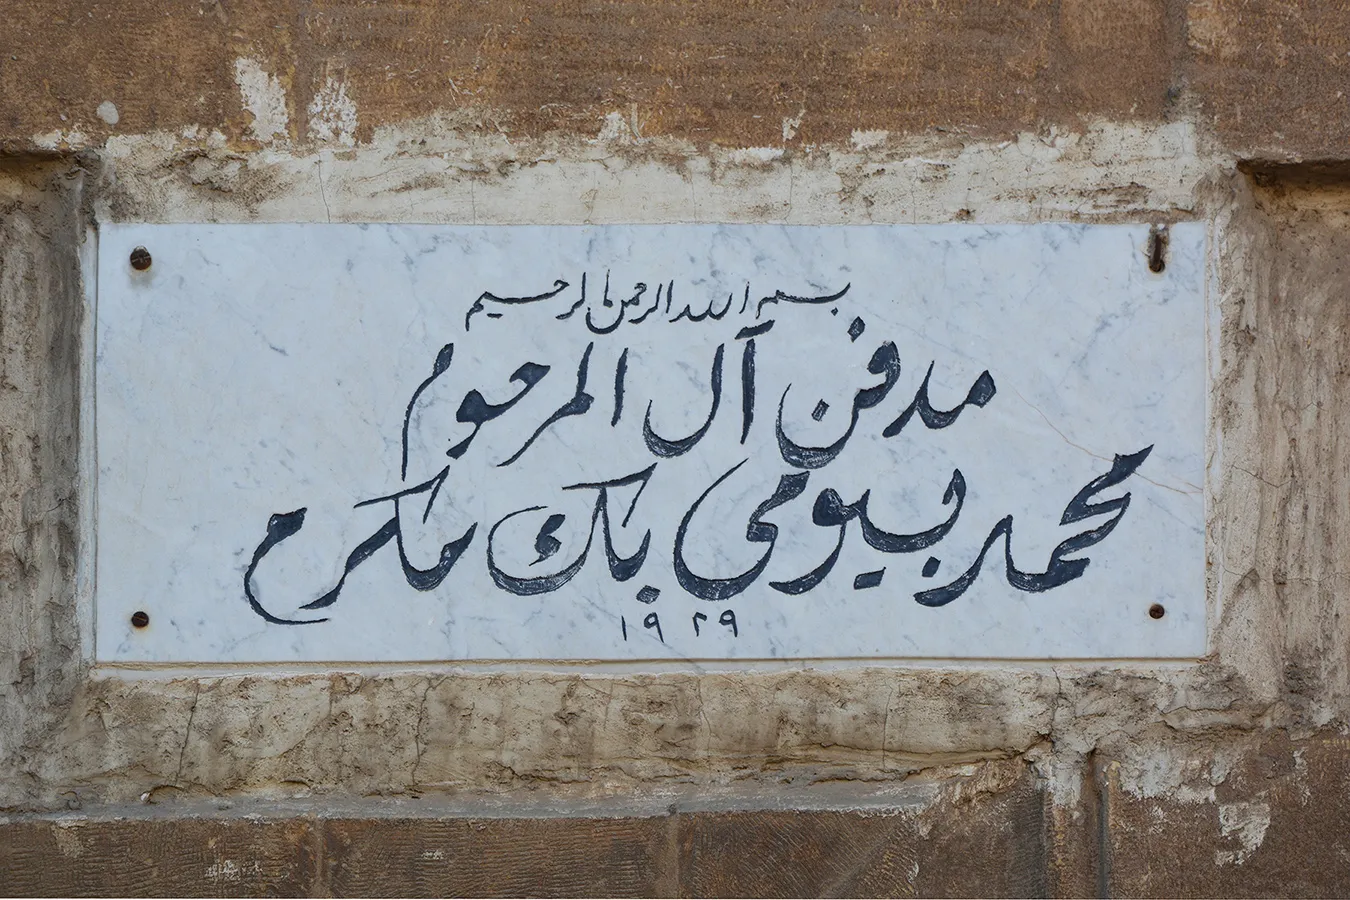 بسم الله الرحمن الرحيم
مدفن آل المرحوم
محمد بيومى بك مكرم
١٩٢٩